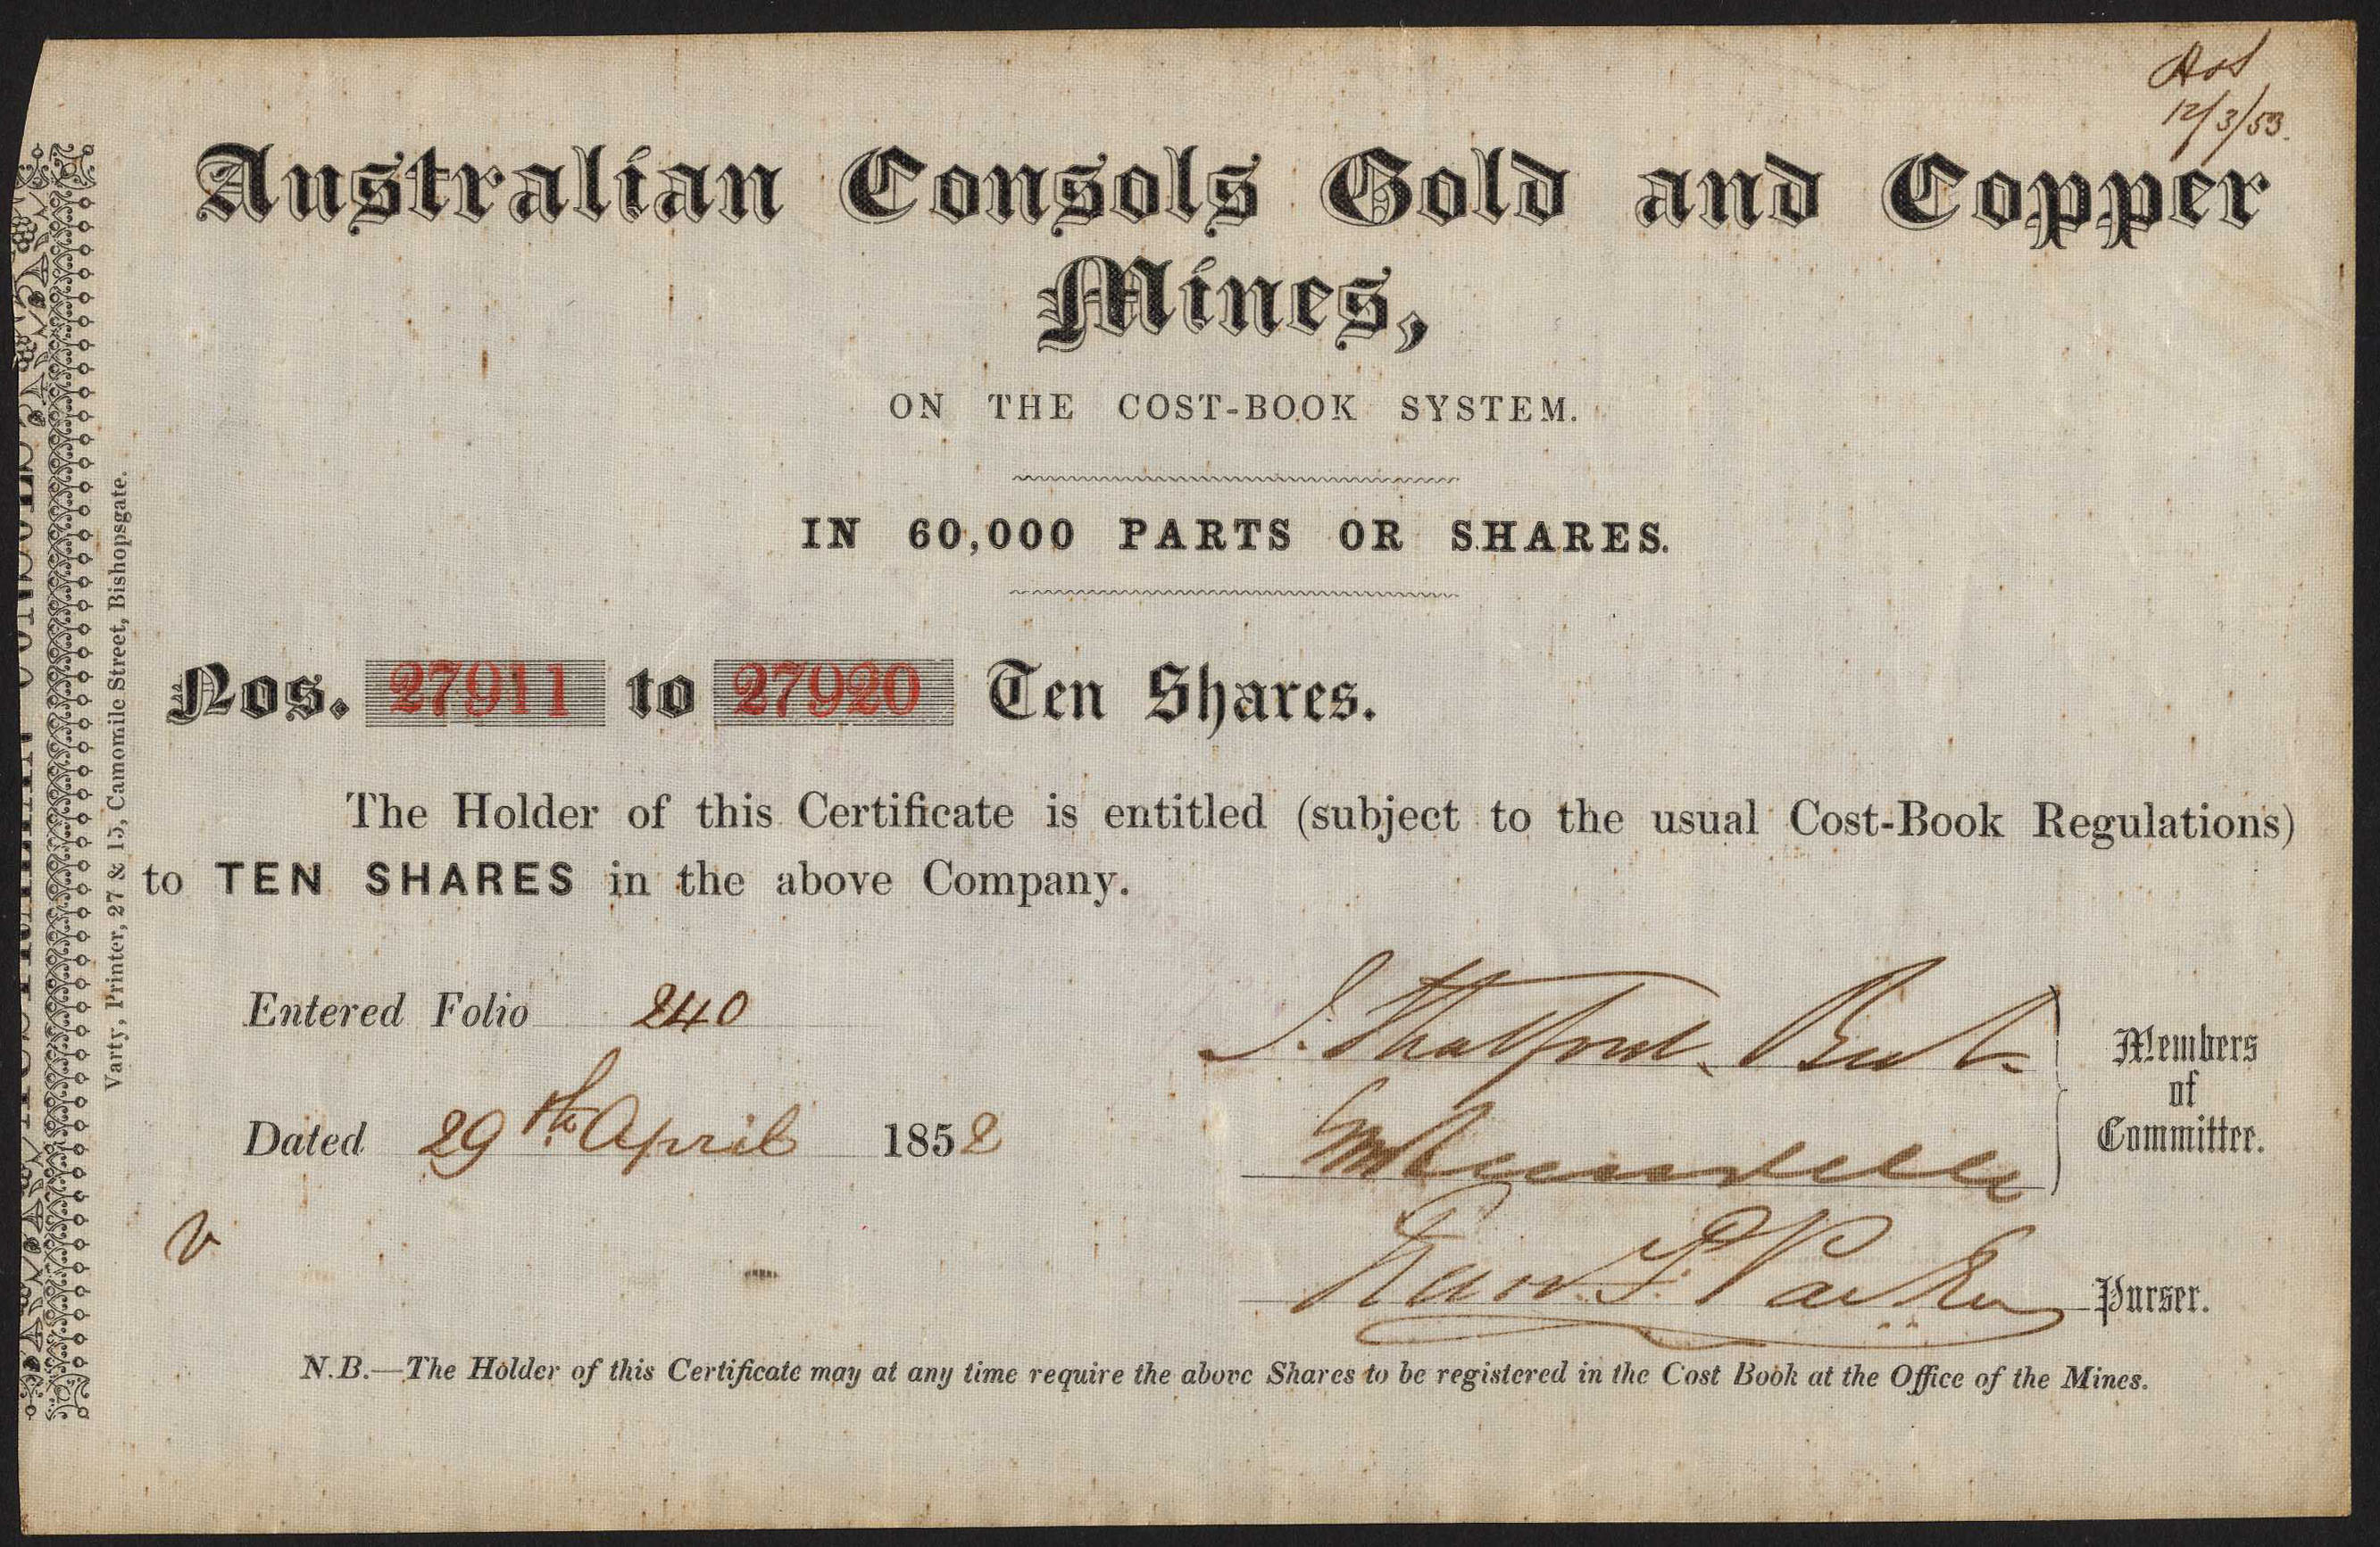 12/3/53.
Australian Consols Gold and Copper
Mines,
ON THE COST-BOOK SYSTEM.
IN 60,000 PARTS OR SHARES.
Nos. 27911 to 27920 Ten Shares.
The Holder of this Certificate is entitled (subject to the usual Cost-Book Regulations)
to TEN SHARES in the above Company.
Entered Folio 240
Dated 29th April 1852
Members
of
Committee.
F. Parker
Purser.
N.B.—The Holder of this Certificate may at any time require the above Shares to be registered in the Cost Book at the Office of the Mines.
Varty, Printer, 27 & 15, Camomile Street, Bishopsgate.